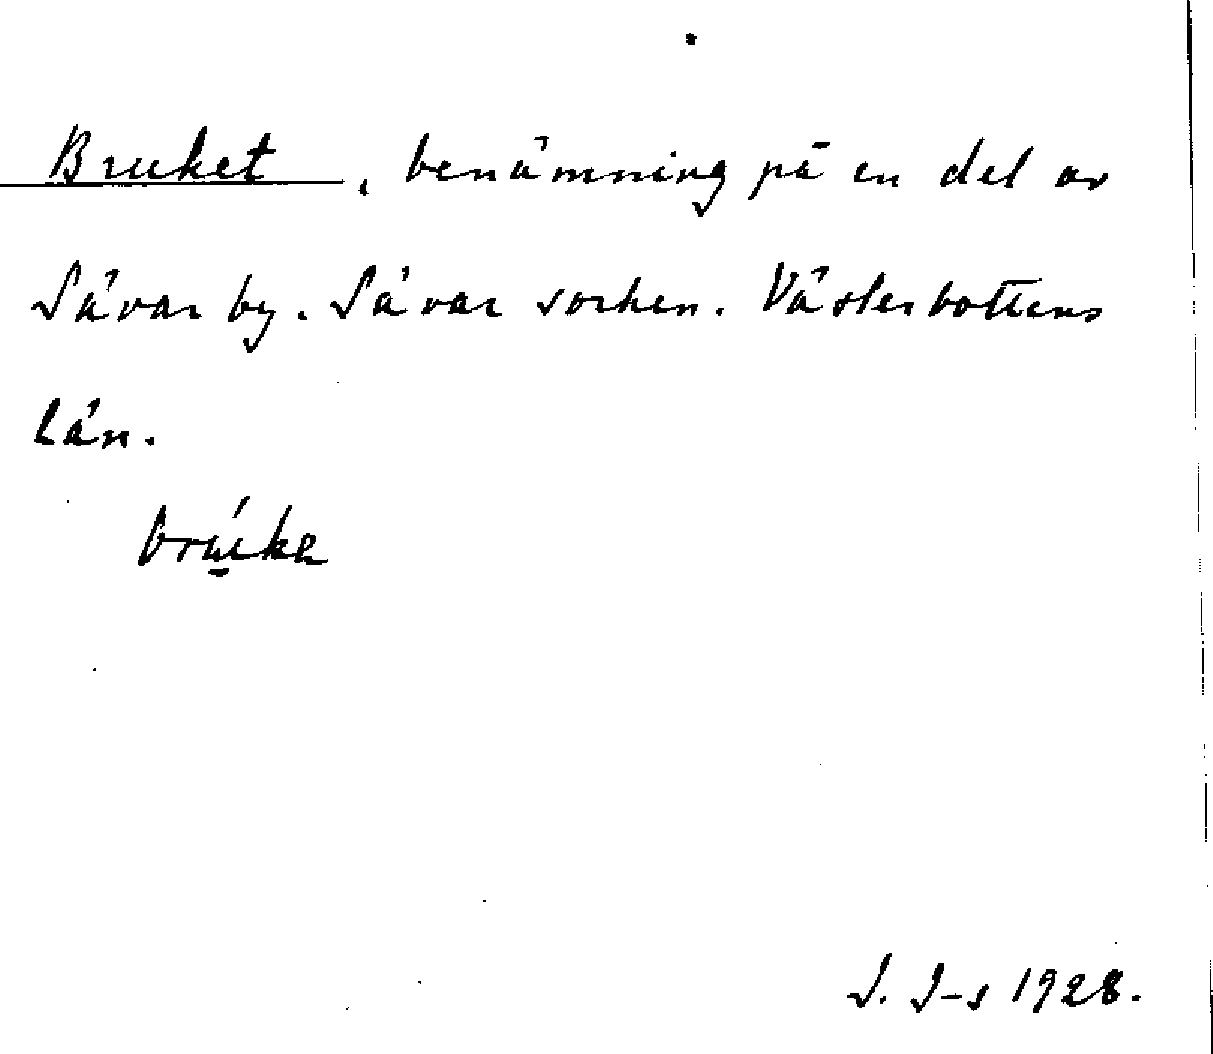 Bruket, benämning på en del av
Sävar by. Sävar socken. Västerbottens
län.
S. J-s 1928.